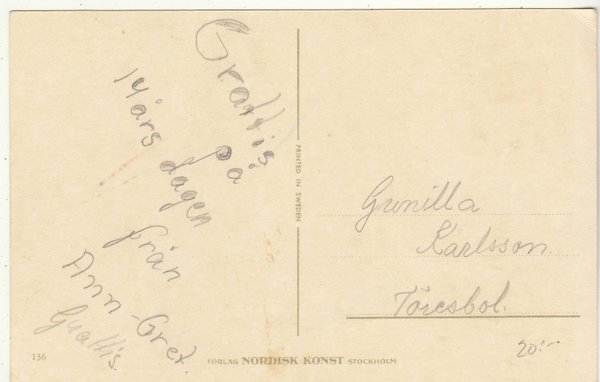 Grattis
på
14 års dagen
från
Ann-Gret.
Grattis.
PRINTED IN SWEDEN
Gunilla
Karlsson.
Töresbol.
20:-
136
FÖRLAG NORDISK KONST STOCKHOLM